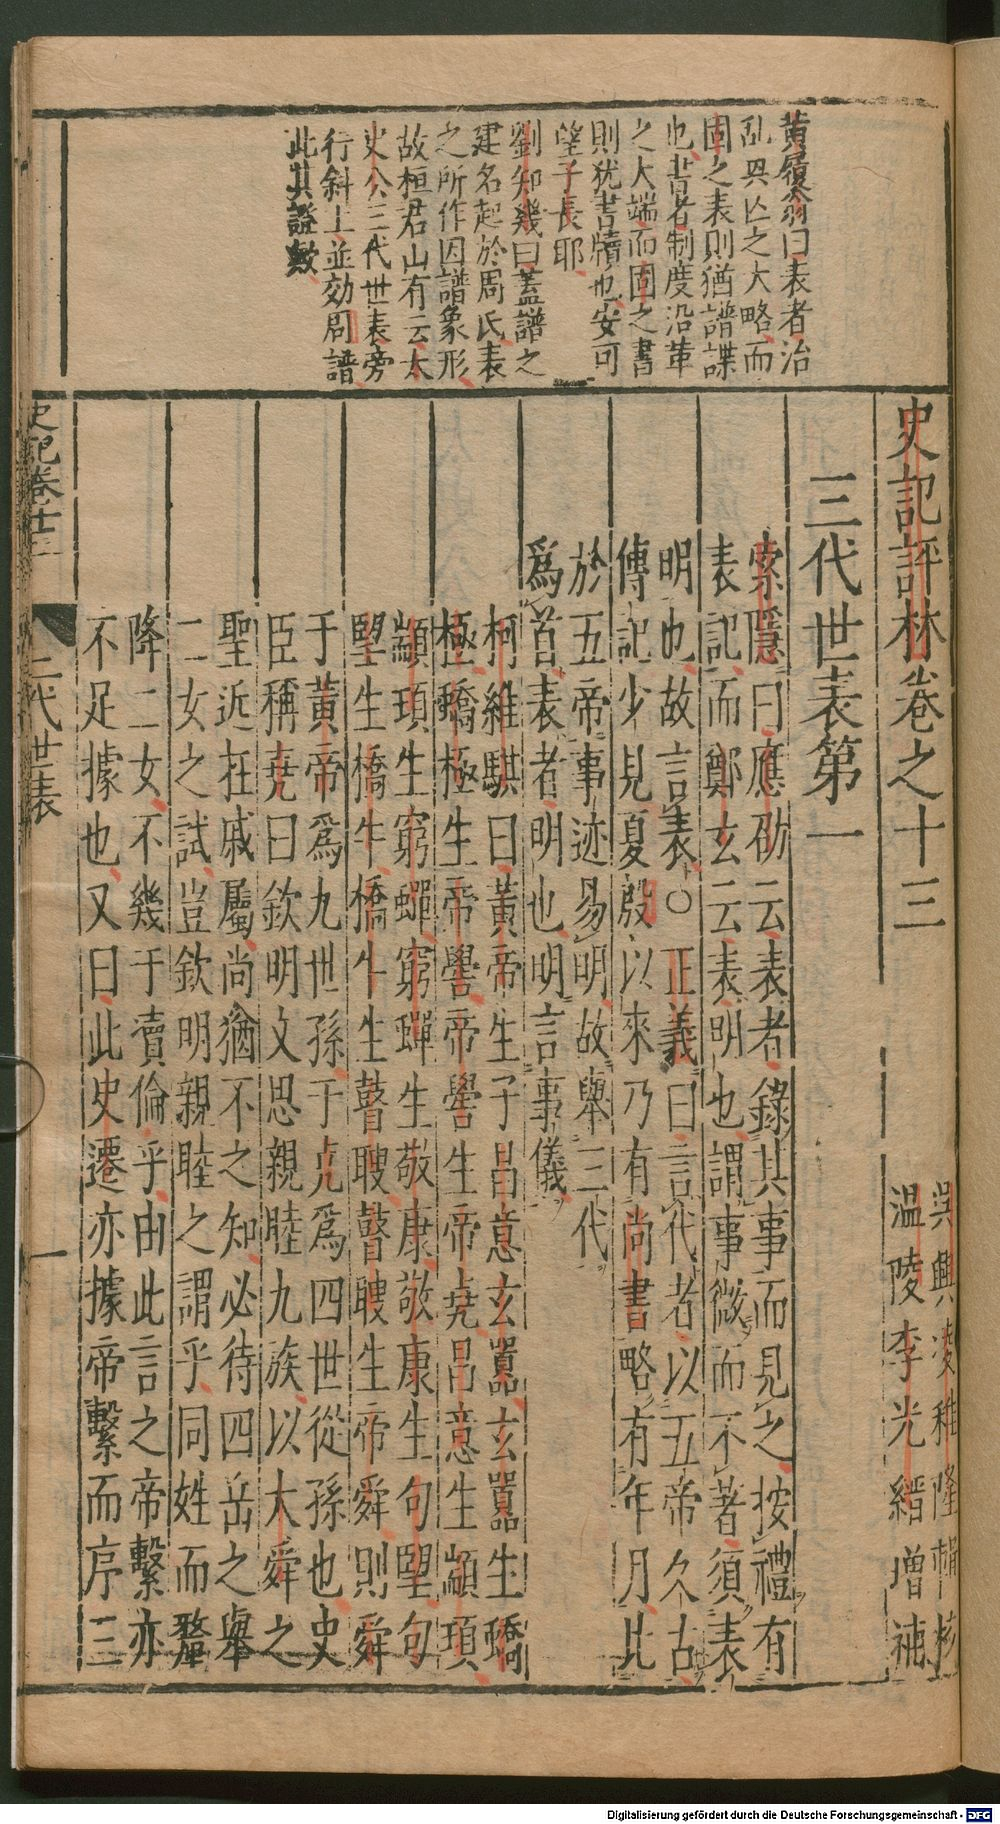 黄履翁曰表者治
乱興亡之大略而
固之表則猶譜諜
也書者制度沿革
之大端而固之書
則犹書牘也安可
望子長耶
劉知幾曰蓋譜之
建名起於周氏表
之所作因譜象形
故桓君山有云太
史公三代世表旁
行斜上並効周譜
此其證歟
史記評林卷之十三
吳興凌稚隆輯校
温陵李光縉增補
三代世表第一
索隱曰應劭云表者錄其事而見之按禮有
表記而鄭玄云表明也謂事微而不著須表
明也故言表○正義曰言代者以五帝久古
傳記少見夏殷以來乃有尚書略有年月比
於五帝事迹易明故舉三代
為首表者明也明言事儀
柯維騏曰黄帝生子昌意玄囂玄囂生蟜
極蟜極生帝嚳帝嚳生帝堯昌意生顓頊
顓頊生窮蟬窮蟬生敬康敬康生句望句
望生橋牛橋牛生瞽瞍瞽瞍生帝舜則舜
于黄帝爲九世孫于堯爲四世從孫也史
臣稱堯曰欽明文思親睦九族以大舜之
聖近在戚屬尚猶不之知必待四岳之舉
二女之試豈欽明親睦之謂乎同姓而釐
降二女不幾于瀆倫乎由此言之帝繫亦
不足據也又曰此史遷亦據帝繫而序三
史記卷十三
三代世表
一
Digitalisierung gefördert durch die Deutsche Forschungsgemeinschaft - DFG